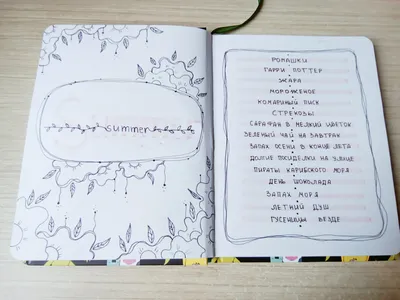 summer
РОМАШКИ
ГАРРИ ПОТТЕР
ЖАРА
МОРОЖЕНОЕ
КОМАРИНЫЙ ПИСК
СТРЕКОЗЫ
САРАФАН В МЕЛКИЙ ЦВЕТОК
ЗЕЛЕНЫЙ ЧАЙ НА ЗАВТРАК
ЗАПАХ ОСЕНИ В КОНЦЕ ЛЕТА
ДОЛГИЕ ПОСИДЕЛКИ НА ЗЕМЛЕ
ПИРАТЫ КАРИБСКОГО МОРЯ
ДЕНЬ ШОКОЛАДА
ЗАПАХ МОРЯ
ЛЕТНИЙ ДУШ
ГУСЕНИЦЫ ВЕЗДЕ